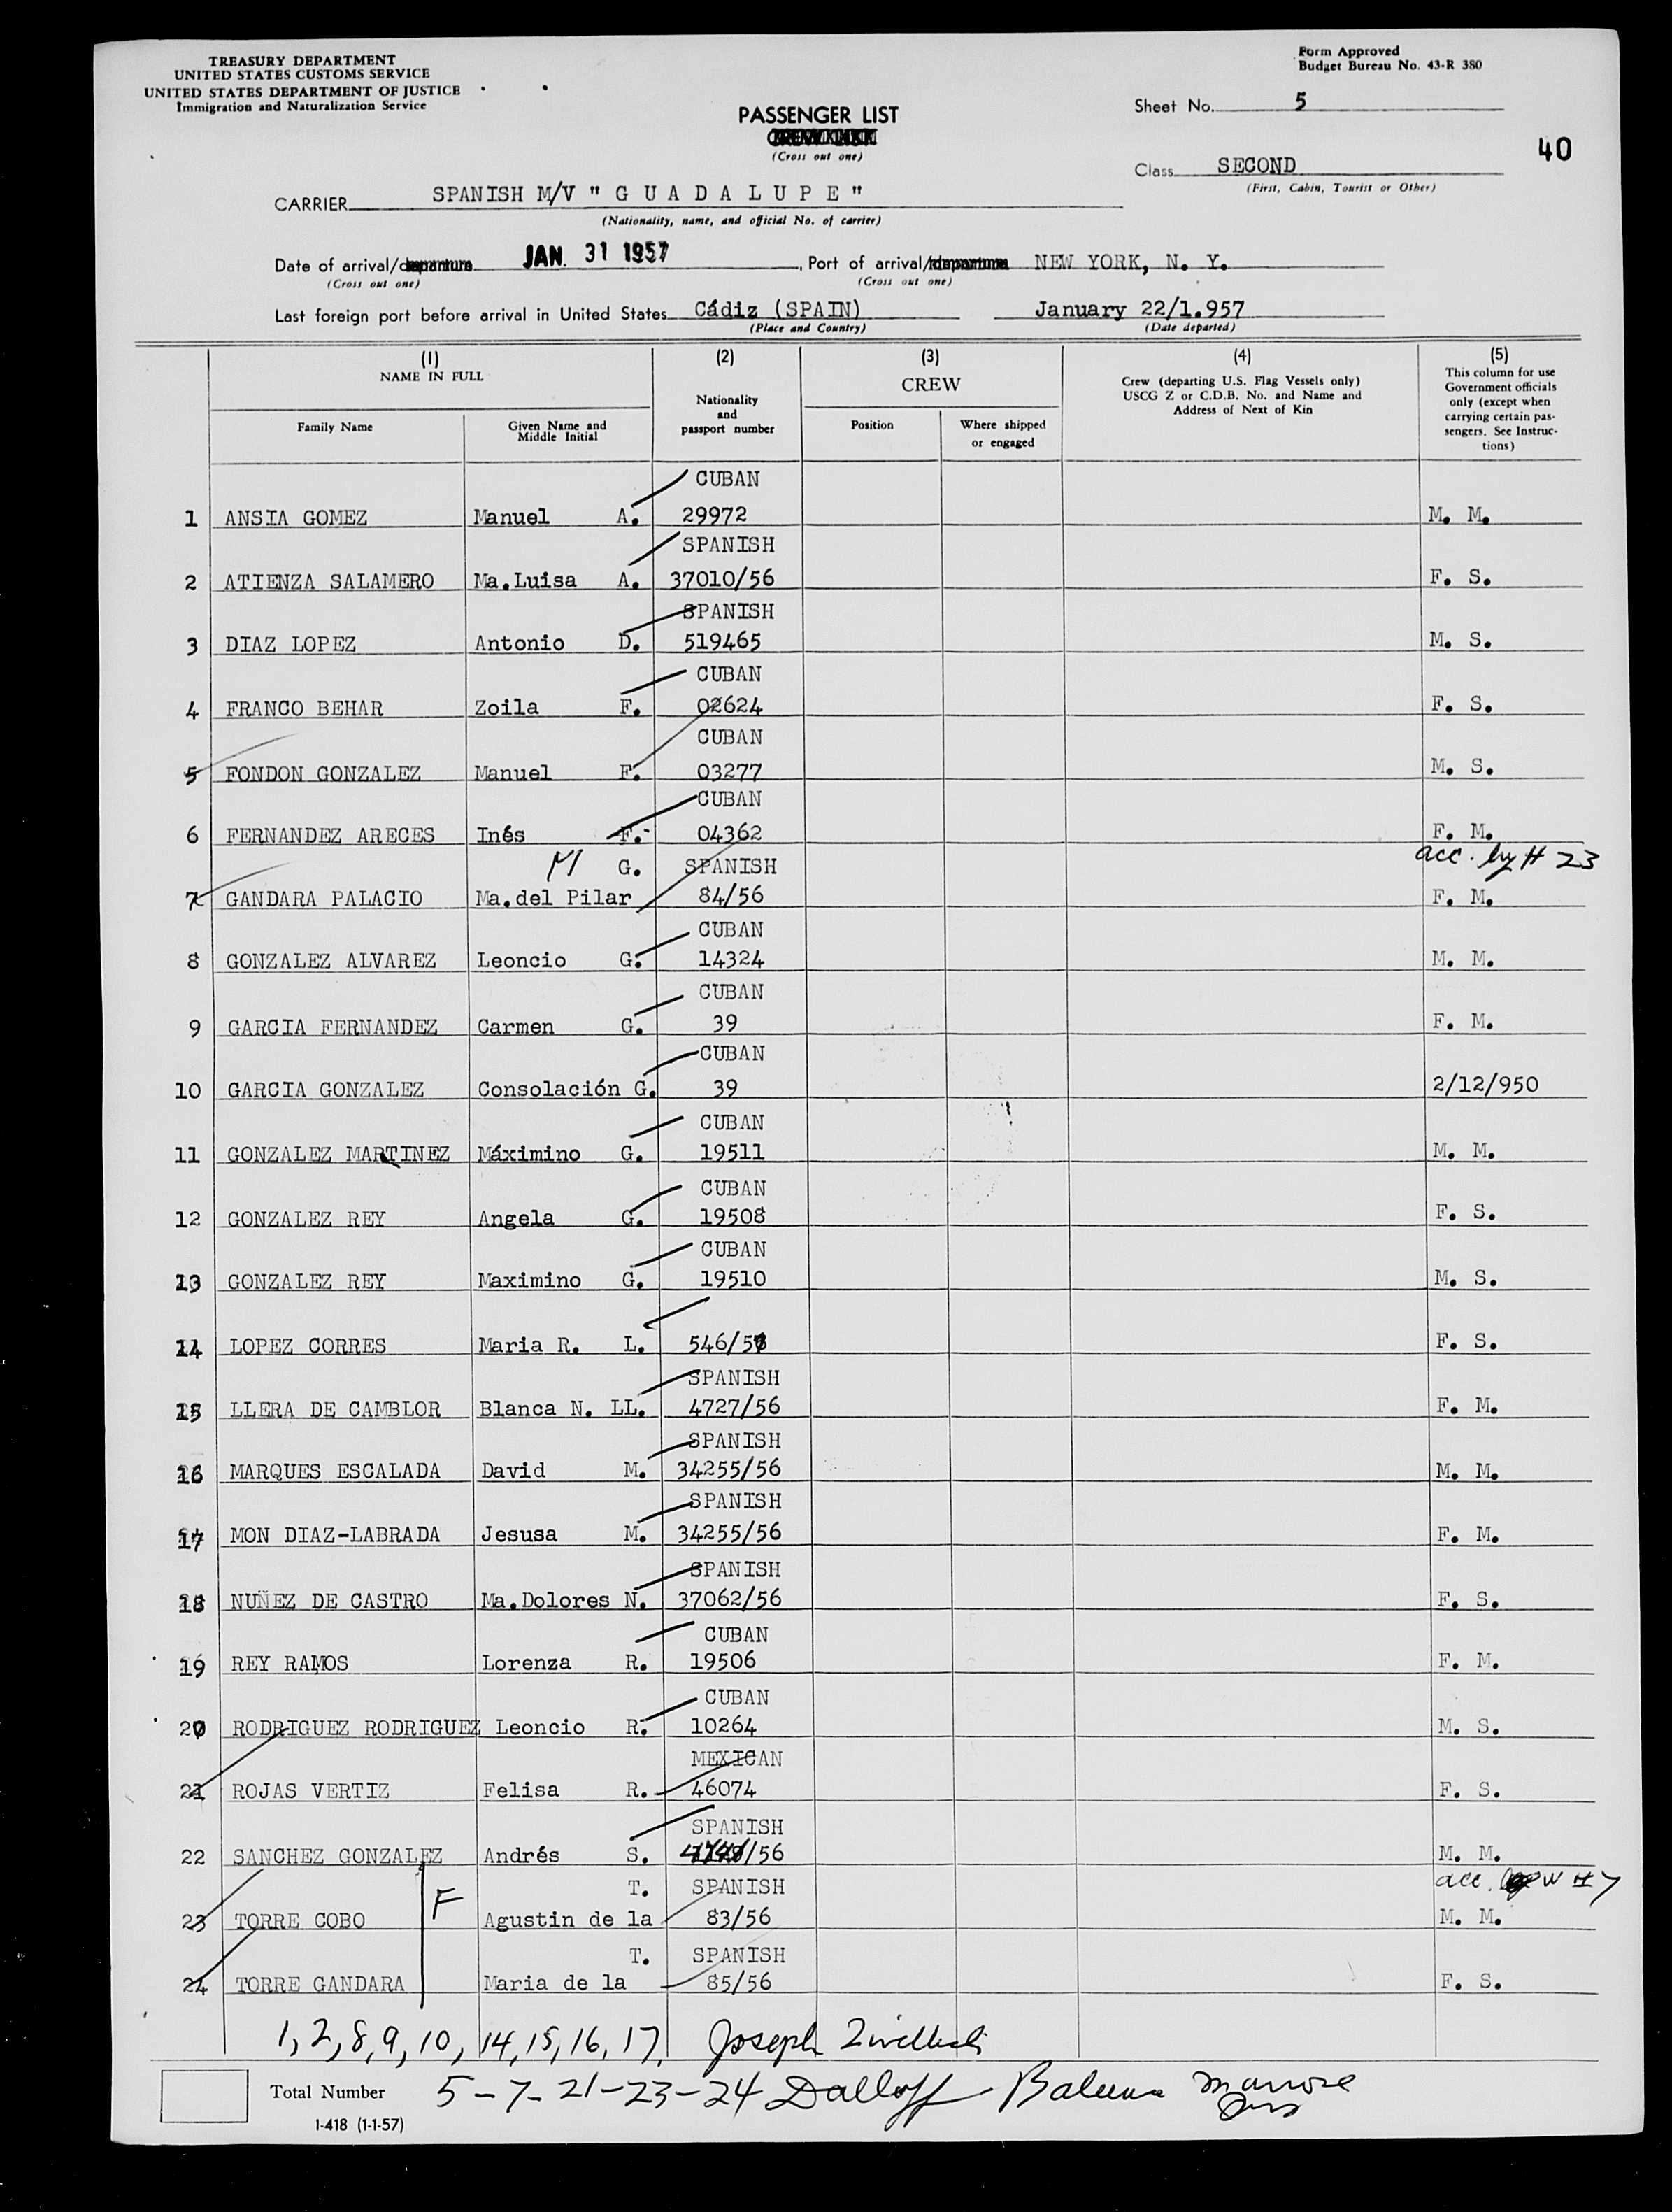 TREASURY DEPARTMENT
UNITED STATES CUSTOMS SERVICE
UNITED STATES DEPARTMENT OF JUSTICE
Immigration and Naturalization Service
Form Approved
Budget Bureau No. 43-R 380
Sheet No. 5
40
PASSENGER LIST
(Cross out one)
Class SECOND
(First, Cabin, Tourist or Other)
CARRIER SPANISH M/V " G U A D A L U P E "
(Nationality, name, and official No. of carrier)
Date of arrival/departure JAN. 31 1957, Port of arrival/departure NEW YORK, N. Y.
(Cross out one) (Cross out one)
Last foreign port before arrival in United States Cádiz (SPAIN) January 22/1.957
(Place and Country) (Date departed)
(1) (2) (3) (4) (5)
NAME IN FULL
Family Name
Given Name and Middle Initial
Nationality and passport number
CREW
Position
Where shipped or engaged
Crew (departing U.S. Flag Vessels only)
USCG Z or C.D.B. No. and Name and
Address of Next of Kin
This column for use
Government officials
only (except when
carrying certain pas-
sengers. See Instruc-
tions)
CUBAN
1 ANSIA GOMEZ Manuel A. 29972 M. M.
SPANISH
2 ATIENZA SALAMERO Ma.Luisa A. 37010/56 F. S.
SPANISH
3 DIAZ LOPEZ Antonio D. 519465 M. S.
CUBAN
4 FRANCO BEHAR Zoila F. 02624 F. S.
CUBAN
5 FONDON GONZALEZ Manuel F. 03277 M. S.
CUBAN
6 FERNANDEZ ARECES Inés F. 04362 F. M.
acc. by # 23
M G. SPANISH
7 GANDARA PALACIO Ma.del Pilar 84/56 F. M.
CUBAN
8 GONZALEZ ALVAREZ Leoncio G. 14324 M. M.
CUBAN
9 GARCIA FERNANDEZ Carmen G. 39 F. M.
CUBAN
10 GARCIA GONZALEZ Consolación G. 39 2/12/950
CUBAN
11 GONZALEZ MARTINEZ Máximino G. 19511 M. M.
CUBAN
12 GONZALEZ REY Angela G. 19508 F. S.
CUBAN
13 GONZALEZ REY Maximino G. 19510 M. S.
14 LOPEZ CORRES Maria R. L. F. S.
SPANISH
15 LLERA DE CAMBLOR Blanca N. LL. 4727/56 F. M.
SPANISH
16 MARQUES ESCALADA David M. 34255/56 M. M.
SPANISH
17 MON DIAZ-LABRADA Jesusa M. 34255/56 F. M.
SPANISH
18 NUÑEZ DE CASTRO Ma.Dolores N. 37062/56 F. S.
CUBAN
19 REY RAMOS Lorenza R. 19506 F. M.
CUBAN
20 RODRIGUEZ RODRIGUEZ Leoncio R. 10264 M. S.
MEXICAN
21 ROJAS VERTIZ Felisa R. 46074 F. S.
SPANISH
22 SANCHEZ GONZALEZ Andrés S. M. M.
acc. w # 7
T. SPANISH
23 TORRE COBO F Agustin de la 83/56 M. M.
T. SPANISH
24 TORRE GANDARA Maria de la 85/56 F. S.
1, 2, 8, 9, 10, 14, 15, 16, 17. Joseph
Total Number 5-7-21-23-24
I-418 (1-1-57)